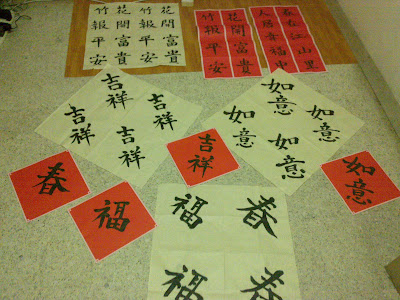 花開富貴
竹報平安
花開富貴
竹報平安
春在江山里
人居幸福中
花開富貴
竹報平安
吉祥
吉祥
吉祥
吉祥
如意
如意
如意
如意
吉祥
如意
春
福
福
春
福
春